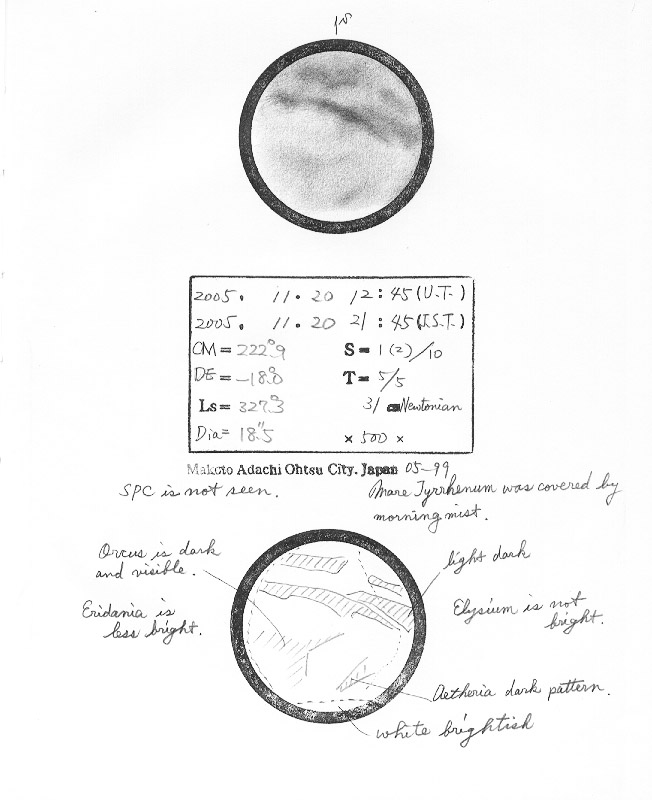 2005. 11. 20 12:45 (U.T.)
2005. 11. 20 21:45 (J.S.T.)
CM = 222.°9 S = 1(2)/10
DE = -18.°0 T = 5/5
Ls = 327.°3 31 cm Newtonian
Dia = 18."5 × 500 ×
Makoto Adachi Ohtsu City. Japan 05-99
SPC is not seen.
Mare Tyrrhenum was covered by
morning mist.
Orcus is dark
and visible.
light dark
Eridania is
less bright.
Elysium is not
bright.
Aetheria dark pattern.
white brightish